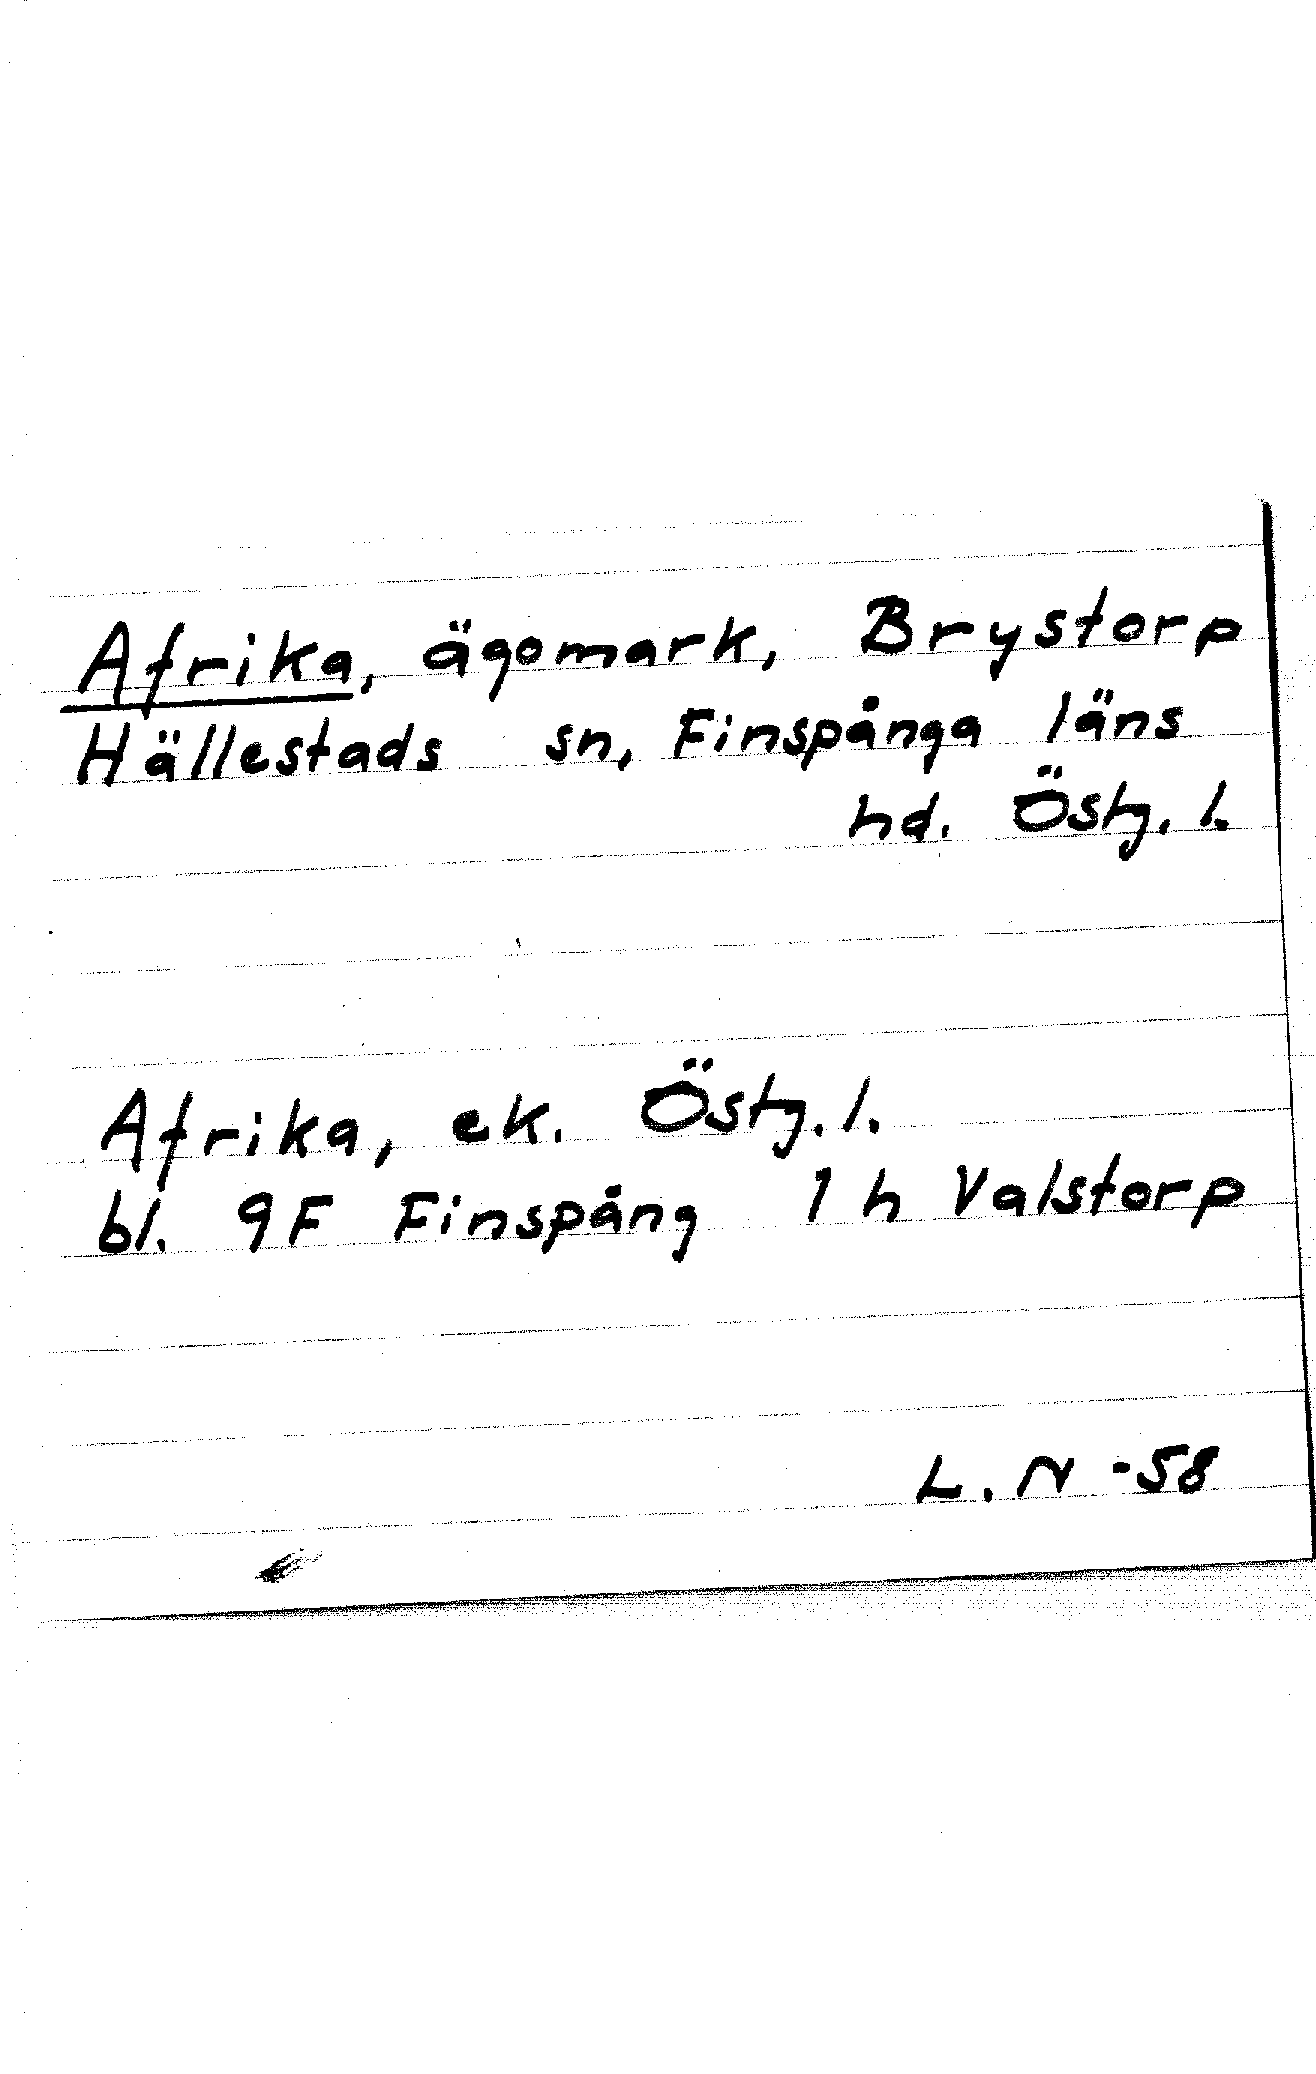 Afrika, ägomark, Brystorp
Hällestads sn, Finspånga läns
hd. Östg. l.
Afrika, ek. Östg. l.
bl. 9F Finspång 1 h Valstorp
L. N -58